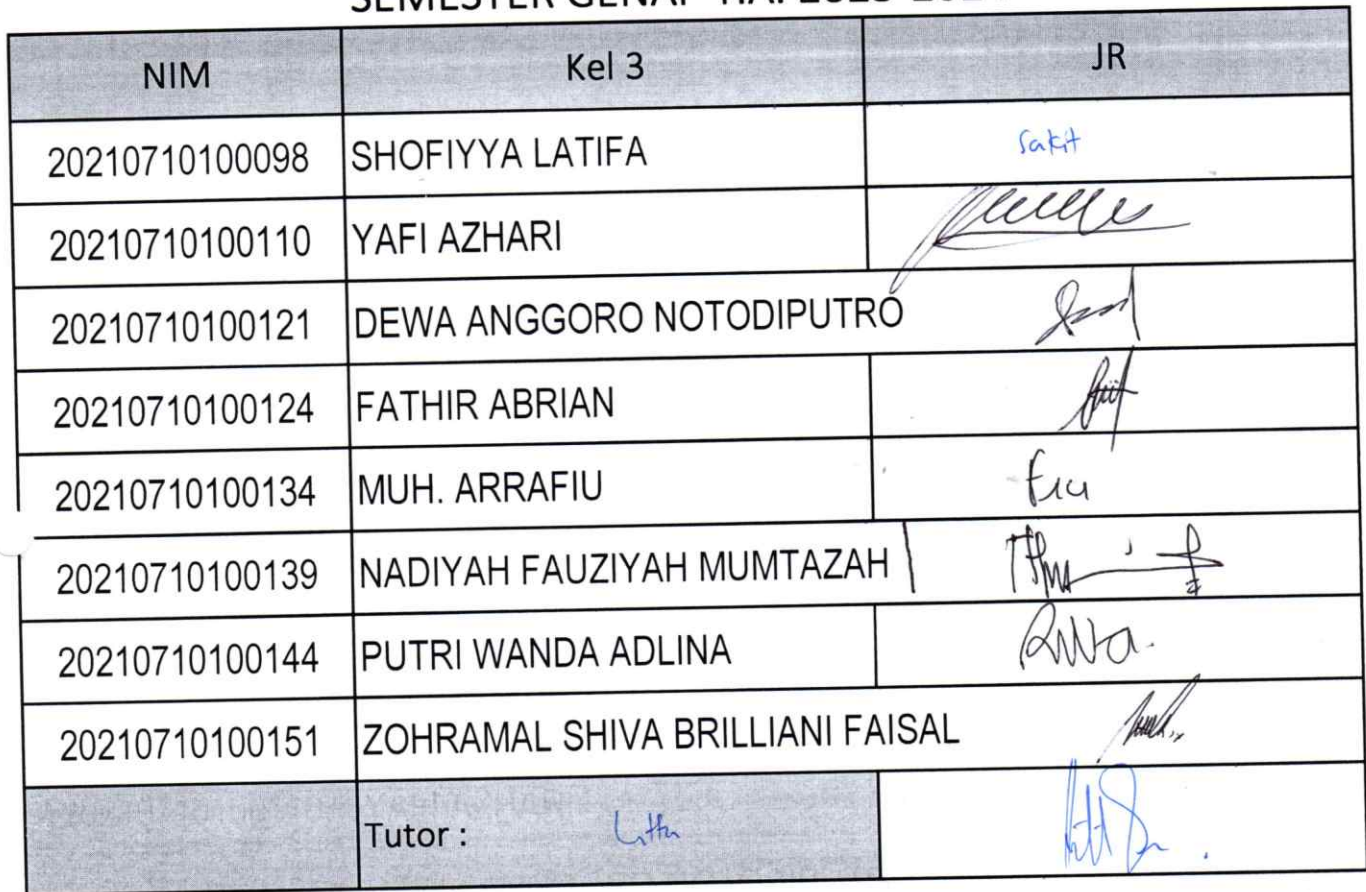 SEMESTER GENAP
NIM Kel 3 JR
20210710100098 SHOFIYYA LATIFA Sakit
20210710100110 YAFI AZHARI
20210710100121 DEWA ANGGORO NOTODIPUTRO
20210710100124 FATHIR ABRIAN
20210710100134 MUH. ARRAFIU
20210710100139 NADIYAH FAUZIYAH MUMTAZAH
20210710100144 PUTRI WANDA ADLINA
20210710100151 ZOHRAMAL SHIVA BRILLIANI FAISAL
Tutor :